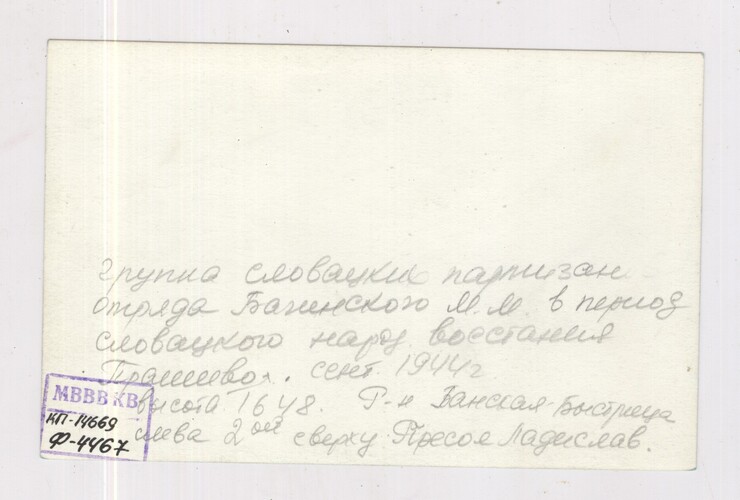 группа словацких партизан
отряда Бачинского М.М. в период
словацкого народ. восстания
сент. 1944 г
высота 1648. Р-н Банская-Быстрица
слева 2ой сверху Ладислав.
МВВВ КВ
КП-14669
Ф-4467